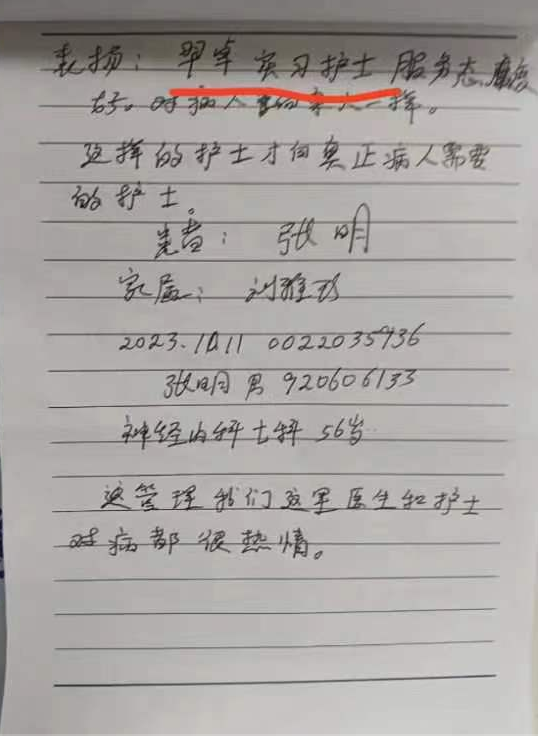 表扬：翠卓实习护士服务态度
好。对病人亲人一样。
这样的护士才是真正病人需要
的护士。
患者：张明
家属：刘雅珍
2023.10.11 0022035936
张明 男 920606133
神经内科七科 56岁
这管理我们这里医生和护士
对病都很热情。